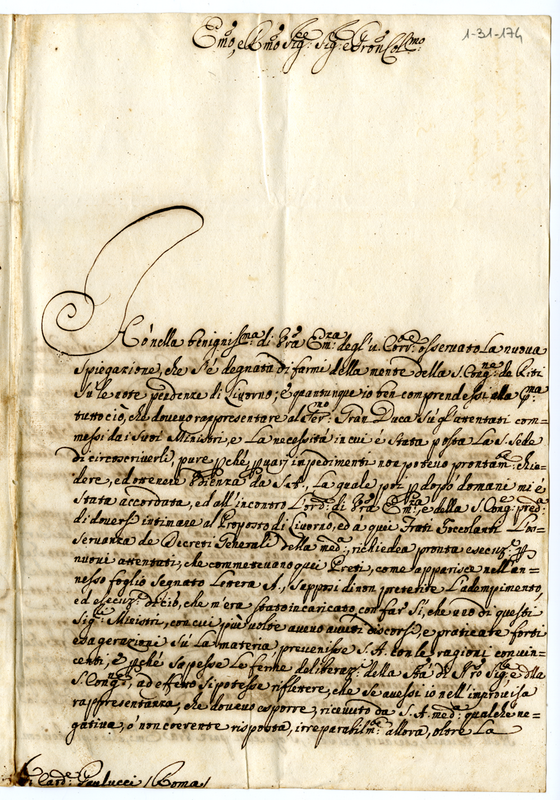 1-31-174
Emo, e Rmo Sig.re Sig.r e Pron Colmo
Hò nella benignis.ma di Vra Em.za degl'u. Corr.te osservato la nuova
spiegazione, che s'è degnata di farmi della mente della S. Cong.ne de Riti
sù le note pendenze di Livorno; e quantunque io ben comprendessi alla p.ma
tutto ciò, che dovevo rappresentare al Ser.mo Gran Duca sù gl'attentati com=
messi da i suoi Ministri, e la necessità in cui è stata posta la S. Sede
di circoscriverli, pure pche varj impedimenti non potevo prontam.e chie=
dere, ed ottenere Udienza da S. A., la quale poi p dopò domani mi è
stata accordata, ed all'incontro l'ord.e di Vra Em.za, e della S. Cong.ne pred.a
di doversi intimare al Proposto di Livorno, ed a quei Frati Zoccolanti l'os=
servanza de Decreti Generali della med.a, richiedea pronta esecuz.e p
nuovi attentati, che commetteuano quei Preti, come apparisce nell'an=
nesso foglio segnato Lettera A., stimai di non preterire l'adempimento,
ed esecuz.e di ciò, che m'era stato incaricato, con far sì, che uno di questi
Sig.ri Ministri, con cui più volte avevo avuti discorsi, e praticate forti
esagerazioni sù la materia, prevenisse S. A. con le ragioni convin=
centi, e pchè sapesse le ferme deliberaz.i della Stà di Nro Sig.re e dlla
S. Cong.ne, ad effetto si potesse riflettere, che se avessi io nell'improvisa
rappresentanza, che dovevo esporre, ricevuto da S. A. med.a qualche ne=
gativa, ò non coerente risposta, irreparabilm.e allora, oltre la
Card.e Paulucci / Roma /